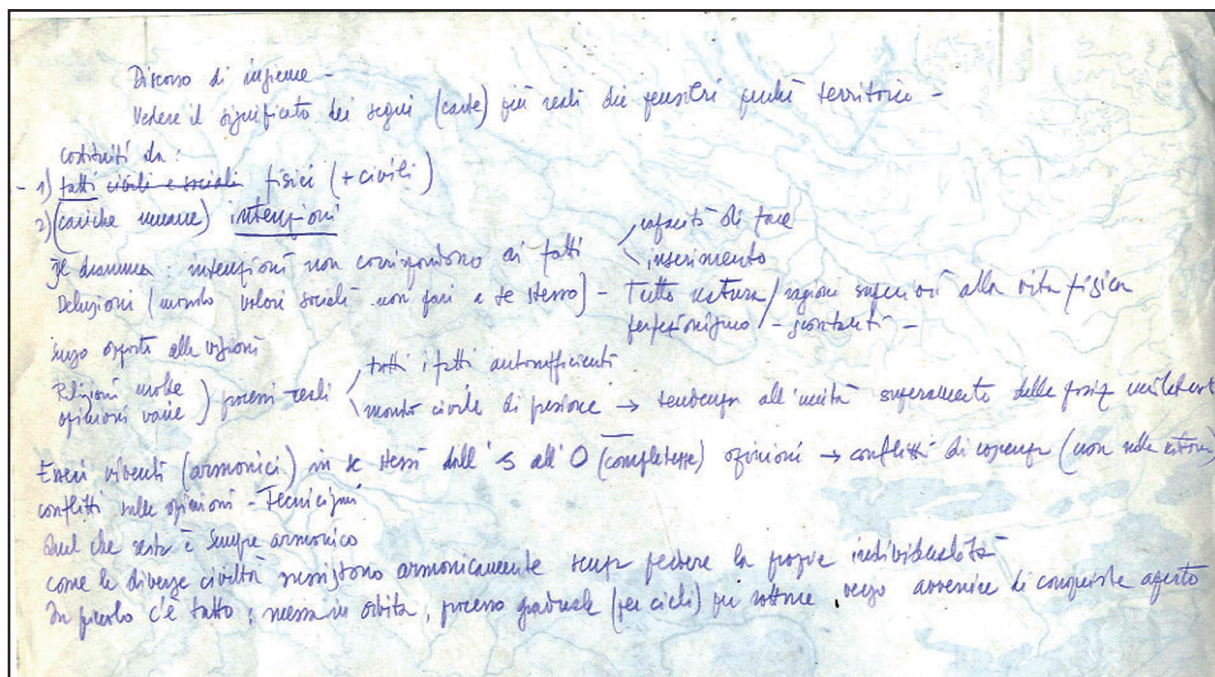 Discorso di insieme -
Vedere il significato dei segni (carte) più reali dei pensieri perché territorio -
costituiti da :
- 1) fatti civili e sociali fisici (+ civili)
2) (cariche umane) intenzioni
Il dramma : intenzioni non corrispondono ai fatti
capacità di fare
inserimento
Delusioni (mondo valori sociali non pari a se stesso) - Tutto natura / ragioni superiori alla vita fisica
perfezionismo / - spontaneità -
opposti alle visioni
Religioni molte
opinioni varie ) processi reali
tutti i fatti autosufficienti
mondo civile di pressione → tendenza all'unità superamento delle posiz unilaterali
Esseri viventi (armonici) in se stessi dall' S all' O (completezza) opinioni → conflitti di (non nella natura)
conflitti sulle opinioni - Tecnicismi
Quel che resta è sempre armonico
come le diverse civiltà sussistono armonicamente senza perdere la propria individualità
In piccolo c'è tutto ; messa in orbita , processo graduale (per cicli) , verso avvenire di conquiste aperto